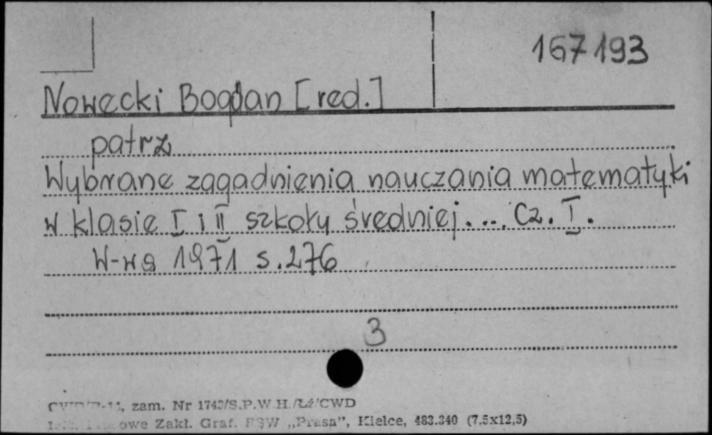 167193
Nowecki Bogdan [red.]
patrz
Wybrane zagadnienia nauczania matematyki
w klasie I i II szkoły średniej.... Cz. I.
W-wa 1971 s.276
3
zam. Nr 1743/S.P.W.H./Łź/CWD
Zakł. Graf. RSW „Prasa”, Kielce, 483.340 (7,5x12,5)